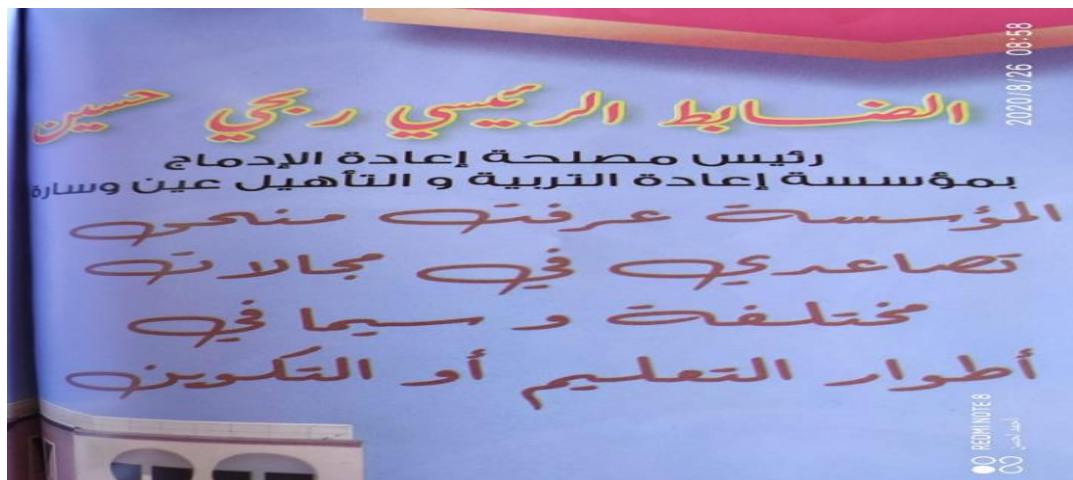 الضابط الرئيسي ربحي حسين
رئيس مصلحة إعادة الإدماج
بمؤسسة إعادة التربية و التأهيل عين وسارة
المؤسسة عرفت منحى
تصاعدي في مجالات
مختلفة و سيما في
أطوار التعليم أو التكوين
2020/8/26 08:58
REDMI NOTE 8
أحمد الحسن